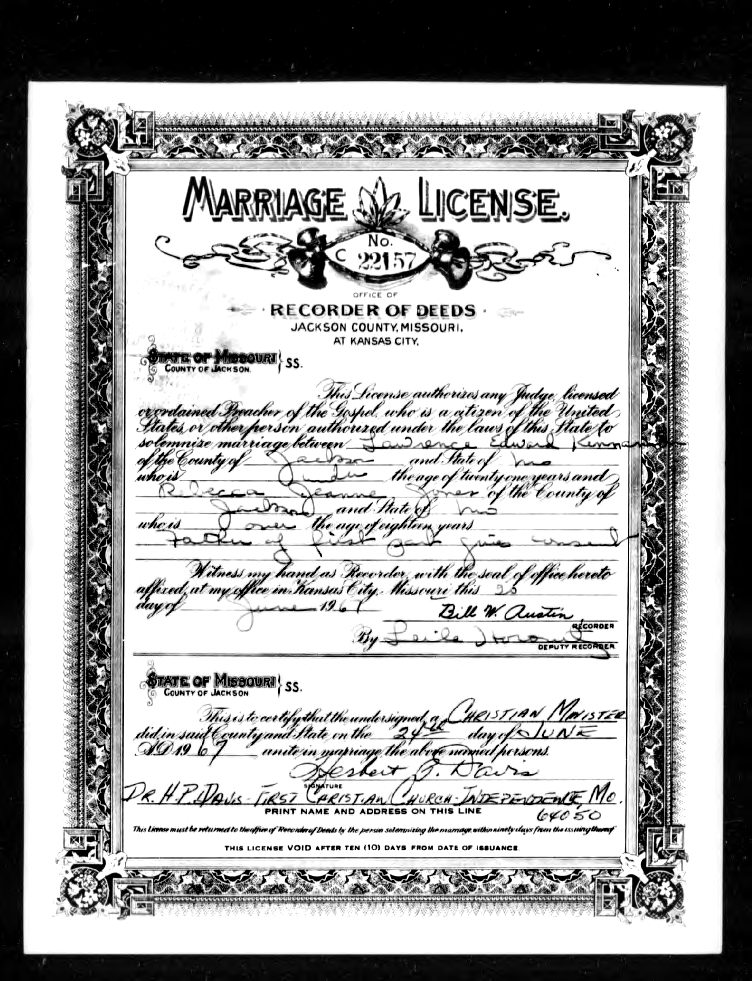 MARRIAGE LICENSE.
No.
C 22157
OFFICE OF
RECORDER OF DEEDS
JACKSON COUNTY, MISSOURI,
AT KANSAS CITY.
STATE OF MISSOURI
COUNTY OF JACKSON } SS.
This License authorizes any Judge, licensed
or ordained Preacher of the Gospel, who is a citizen of the United
States, or other person authorized under the laws of this State, to
solemnize marriage between Lawrence Edward
of the County of Jackson and State of Mo
who is under the age of twenty one years and
Rebecca Jeanne Jones of the County of
Jackson and State of Mo
who is over the age of eighteen years
Father of first part gives consent
Witness my hand as Recorder, with the seal of office hereto
affixed, at my office in Kansas City, Missouri this 20
day of June 1967
Bill W. Austin
RECORDER
By Leila
DEPUTY RECORDER
STATE OF MISSOURI
COUNTY OF JACKSON } SS.
This is to certify that the undersigned, a CHRISTIAN MINISTER
did, in said County and State on the 24th day of JUNE
AD 1967 unite in marriage, the above named persons.
Herbert P. Davis
SIGNATURE
DR. H.P. DAVIS - FIRST CHRISTIAN CHURCH - INDEPENDENCE, MO.
PRINT NAME AND ADDRESS ON THIS LINE
64050
This License must be returned to the office of Recorder of Deeds by the person solemnizing the marriage, within ninety days from the issuing thereof
THIS LICENSE VOID AFTER TEN (10) DAYS FROM DATE OF ISSUANCE.